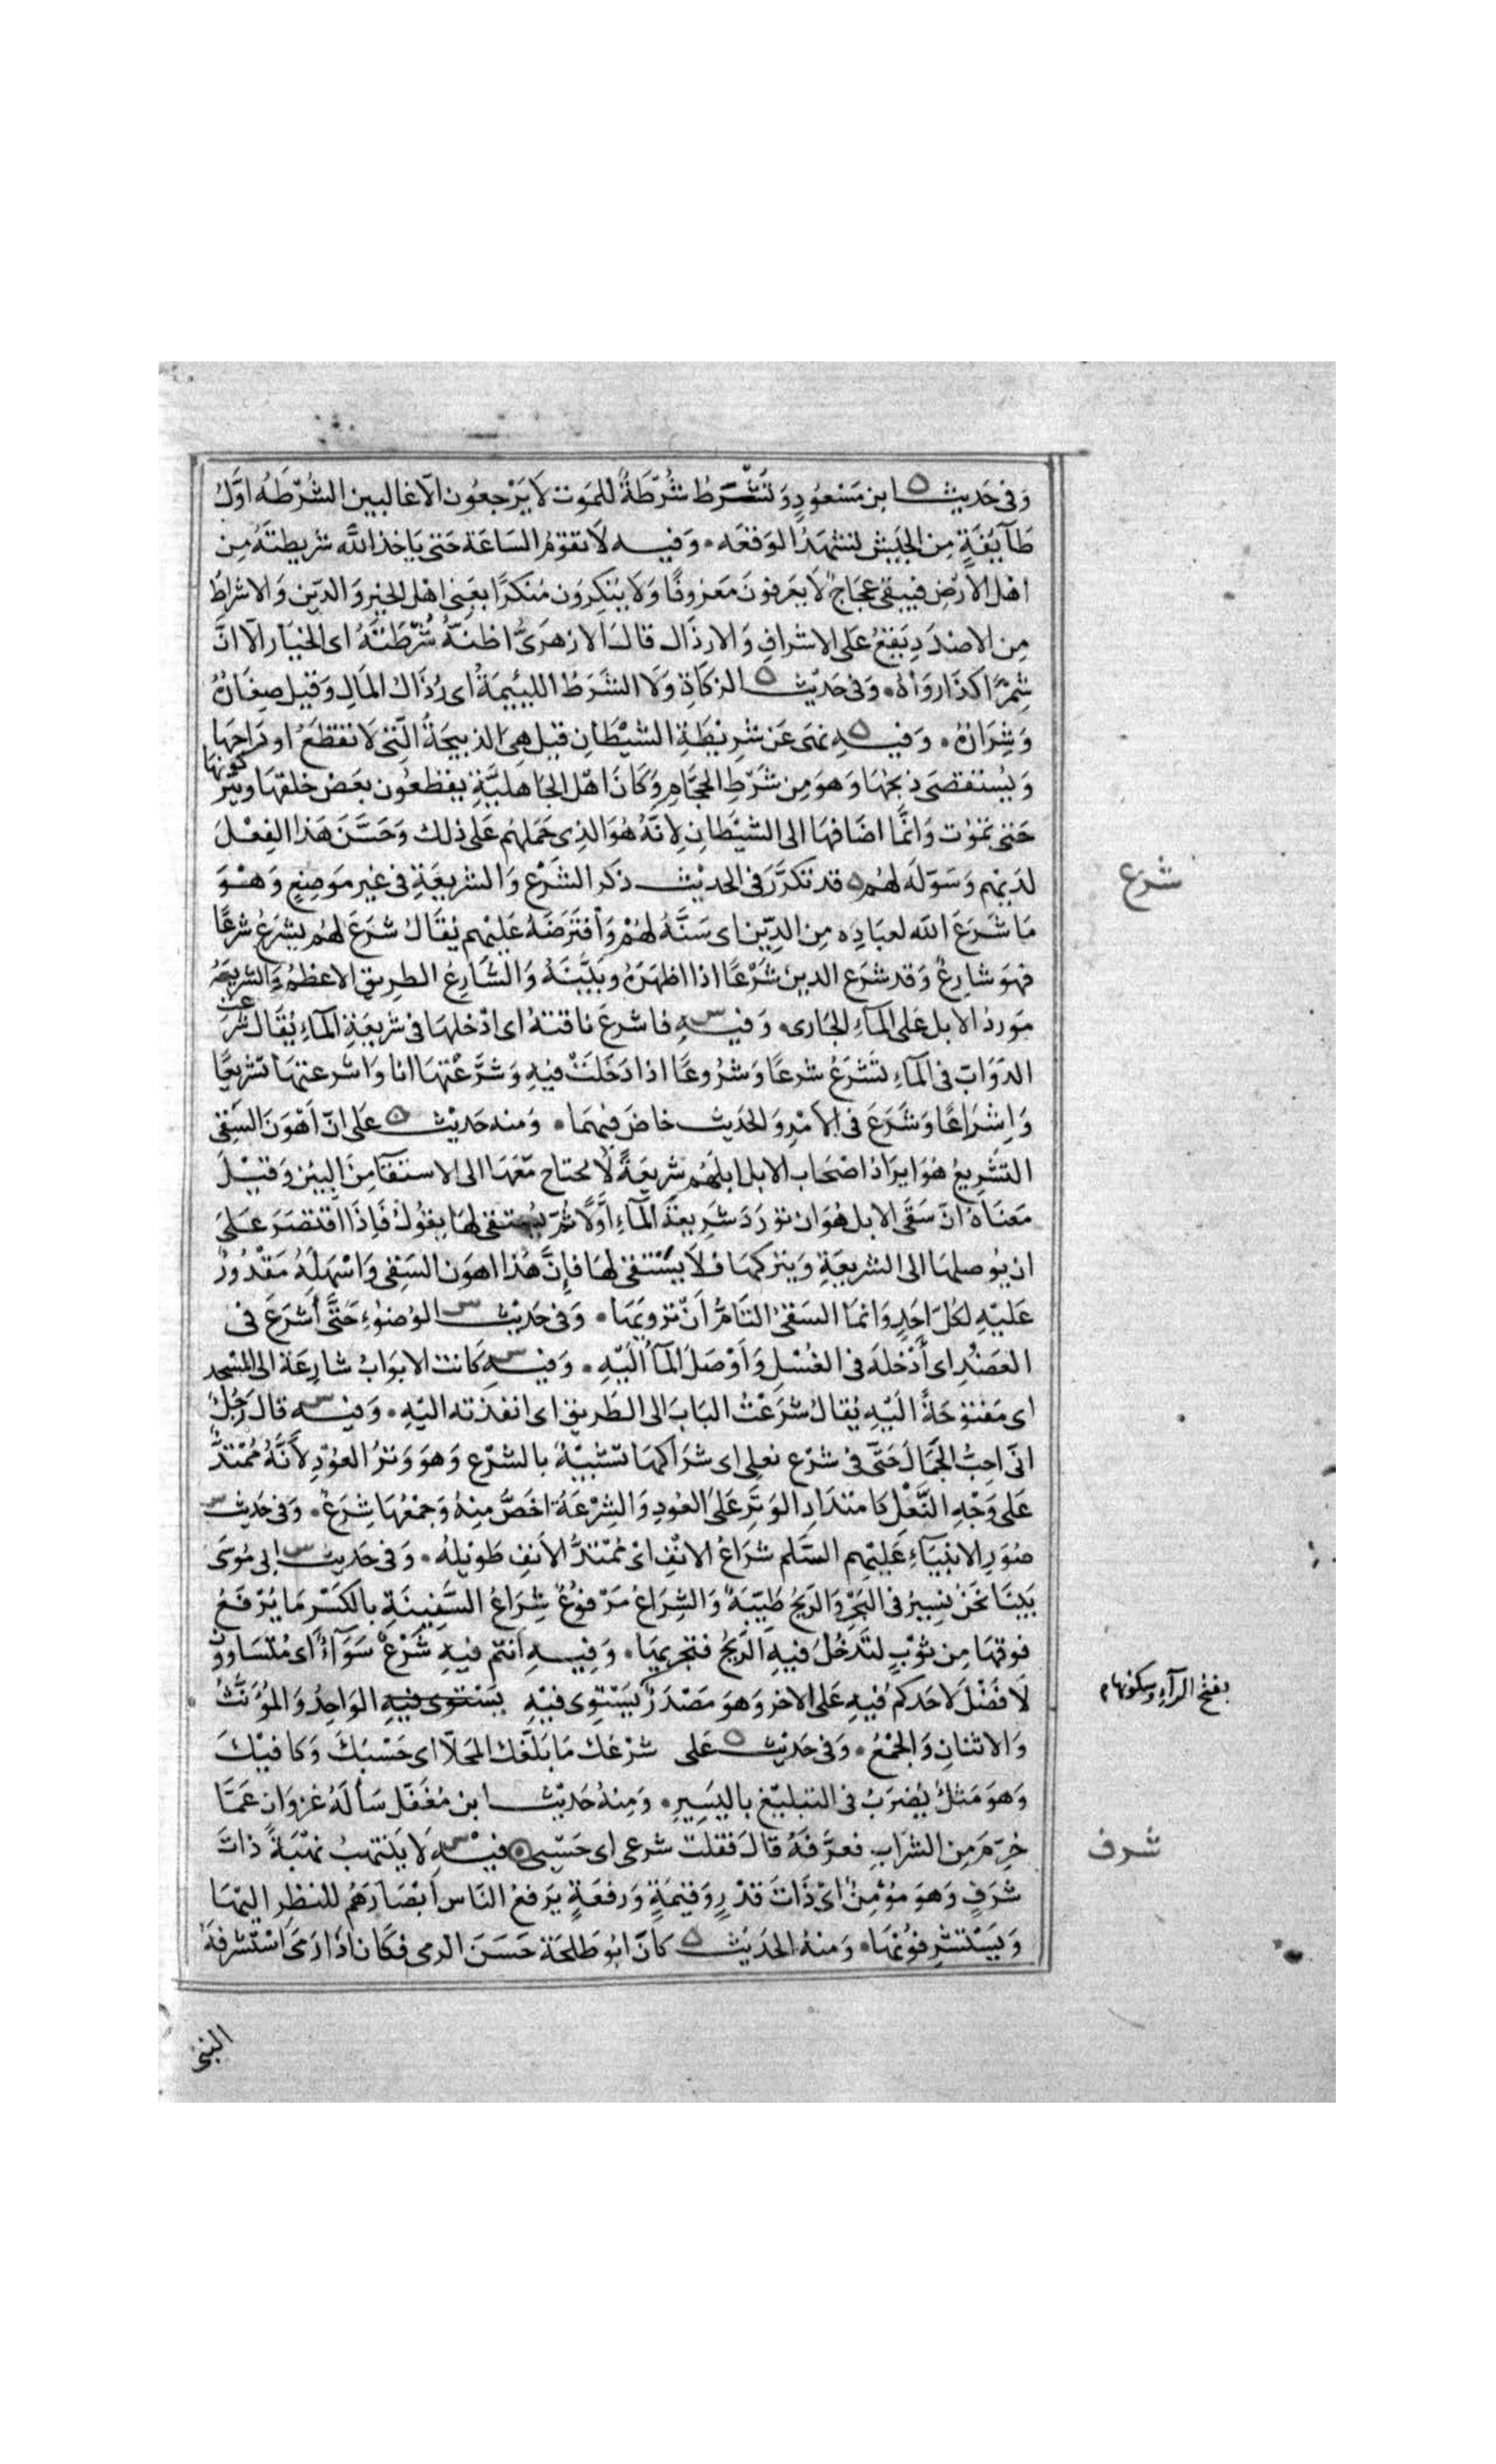 وَفى حَديث ه ابن مَسْعُودٍ وَتُشْرَطُ شُرْطَةٌ للمَوت لَا يَرْجعُون الّا غالبين الشُرْطَهُ اوّل
طَآيِفَةٍ مِن الجَيش تشهَدُ الوَقعَه ۰ وَفيه لَا تقوْمُ السَاعَة حَتى يَاخذ اللَّه شريطتَهُ مِن
اهْل الأرْضِ فيبقى عجَاجٌ لَا يَعرفونَ مَعرُوفًا وَلَا يُنْكِرَوُن مُنكَرًا يعَنى اهْل الخيْر وَالدّين وَالاشراطُ
مِن الاضدَادِ يَقعُ عَلى الاشرافِ وَالارذَال قالَ الازهَرىُّ اظنّهُ شُرْطَتَهُ اى الخيَار الّا انَّ
شِمْرًا كذَا رَوَاهُ ۰ وَفى حَديْث ه الزكَاةِ وَلَا الشَّرَطُ اللئيمَةُ اى رُذَال المَالِ وَقيْل صِغَارُهُ
وَشِرَارُهُ ۰ وَفيه ه نهَى عَن شرِيْطَةِ الشيْطَانِ قيْل هِىَ الذبيحَةُ الَّتى لَا تقطَعُ اوْدَاجُهَا
وَيُسْتقصَى ذبحُهَا وَهوَ مِن شَرْطِ الحَجَّامِ وَكَانَ اهْل الجَاهليَّةِ يقطعُون بعَضْ حَلقهَا ويَتْركونهَا
حَتى تموْت وَانمَّا اضَافهَا الى الشيْطَانِ لِانَّهُ هُوَ الذِى حَمَلهُم عَلى ذلك وَحَسَّنَ هَذا الفِعْلَ
لدَيْهم وَسَوّلَه لهُم ه قد تكرَّرَ فى الحديْث ذكر الشَرْع وَالشريعَةِ فى غير مَوضِعٍ وَهوَ
شرع
مَا شَرَعَ اللّه لعبَادِه مِن الدِّين اى سَنَّهُ لهُمْ وَافْتَرَضَهُ عَليْهم يُقَالُ شَرَعَ لهُم يشرَعُ شرعًا
فهوَ شارعٌ وَقد شرَع الدين شَرْعًا اذا اظهَرَهُ وبيَّنهُ وَالشَّارِعُ الطريق الاعظمُ وَالشريعَهُ
مَوردُ الابل على المآءِ الجَارى ۰ وَفيه س فاشرعَ ناقتهُ اى ادْخلهَا فى شريعَةِ المآءِ يُقَالُ شرَعَت
الدَوَابّ فى المآءِ تَشْرَعُ شرعًا وَشرُوعًا اذا دَخَلَتْ فيْهِ وَشرَّعْتهَا انا وَاشرعتهَا تشريعًا
وَاِشْرَاعًا وَشَرَعَ فى الأمْرِ وَالحَديث خاضَ فيهمَا ۰ وَمنه حَديْث ه عَلى انّ اَهْوَن السَقى
التشْرِيعُ هُوَ ايرَادُ اصْحَاب الابل ابلهُم شريعَةً لَا يحتاح مَعَهَا الى الاستقآ مِنَ البِيْر وَقيْلَ
مَعنَاهُ انّ سَقَى الابل هُوَ ان توْرَدَ شَريعَةَ المآءِ اوَّلًا ثمّ يُستقى لهَا يقوُلُ فَاِذَا اقتصَرَ عَلىَ
ان يُوصلهَا الى الشريعَةِ وَيتركهَا فلَا يَسْتقى لهَا فاِنَّ هٰذا اهوَن السَقى وَاسْهَلهُ مَقدُورٌ
عَليْهِ لكلّ احَدٍ وَانمَا السَقىُ التَامُّ اَنْ تروِيَهَا ۰ وَفى حَديْث س الوُضوْءِ حَتَّى أَشرَعَ فى
العَضُدِ اى أدْخلَهُ فى الغُسْل وَأوْصَلَ المآءَ اليْهِ ۰ وَفيه س كَانت الابوَابُ شارعَة الى المسْجد
اى مَفتوْحَةً اليْهِ يُقالُ شَرَعْتُ البَابَ الى الطَريق اى انفذته اليْهِ ۰ وَفيه س قال رَجُلٌ
انّى احِبُّ الجَمَالَ حَتَّى فى شرْع نعلى اى شرَاكهَا تشبيْهٌ بالشرْع وَهوَ وَترُ العوُدِ لأنّهُ مُمْتدُّ
عَلى وَجْهِ النَّعْلِ كَامتدَادِ الوَتَرِ عَلَى العُودِ وَالشرْعَةُ اخَصُّ مِنهُ وَجمْعُهَا شِرَعٌ ۰ وَفى حَديْث س
صُوَر الانبيَآءِ عَليْهم السَّلم شرَاعُ الانْفِ اىْ مُمْتدُّ الأنفِ طويْلهُ ۰ وَفى حَديْث س ابى مُوسَى
بَيْنَا نَحْنُ نسِيرُ فى البَحْرِ وَالريْحُ طَيّبَةٌ وَالشِرَاعُ مَرْفوْعٌ شِرَاعُ السَّفينَةِ بالكَسْر مَا يُرْفَعُ
فوقهَا مِن ثوْبٍ لتَدخُلَ فيهِ الرّيحُ فتجريهَا ۰ وَفيهِ أنتم فيهِ شَرْعٌ سَوَآءٌ اى مُتسَاوُون
لَا فَضْلَ لاحَدكم فيهِ عَلى الاخر وَهوَ مَصْدَرٌ يَسْتوِى فيْهِ يَسْتوى فيهِ الوَاحِدُ وَالمُؤَنَّثُ
بفتح الرآءِ وسكونها م
وَالاثنانِ وَالجَمْعُ ۰ وَفى حَديْث ه عَلى شرْعُكَ مَا بَلّغَك المَحَلّا اى حَسْبُكَ وَكافيْكَ
وَهوَ مَثلٌ يُضرَبُ فى التبليْغ باليَسِيرِ ۰ وَمِنهُ حَديْث ابن مُغَفّل سَألَهُ غزوَان عَمّا
حُرّمَ مِن الشرَابِ فعرَّفَهُ قالَ فقلت شرعى اى حَسْبى ه فيْهِ س لَا يَنتهِبُ نهْبَةً ذاتَ
شرف
شرَفٍ وَهوَ مُؤْمِنٌ اىْ ذَاتَ قدْرٍ وَقيْمَةٍ وَرفعَةٍ يَرفعُ النّاس ابْصَارَهُم للنظر اليْهَا
وَيَسْتشرِفوُنهَا ۰ وَمنهُ الحَدَيْث ه كَانَ ابُو طَلحَة حَسَنَ الرمى فكَان اذَا رَمَى اسْتشرفهُ
النبى